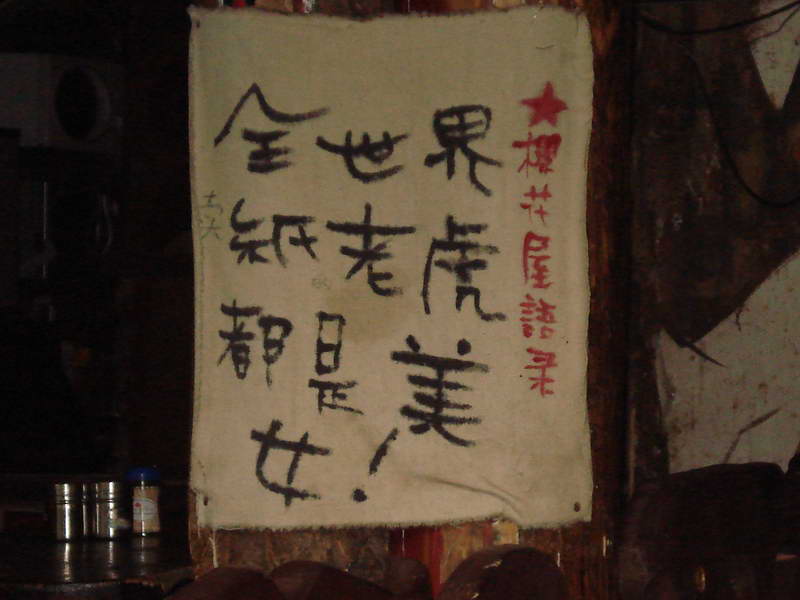 ★樱花屋語录
全世界
纸老虎
都是美
女!